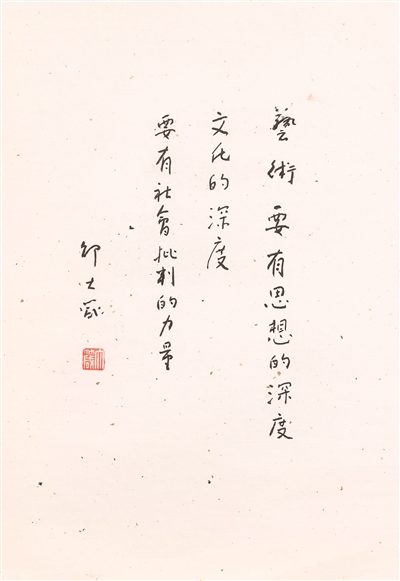 藝術要有思想的深度
文化的深度
要有社會批判的力量
邵大箴